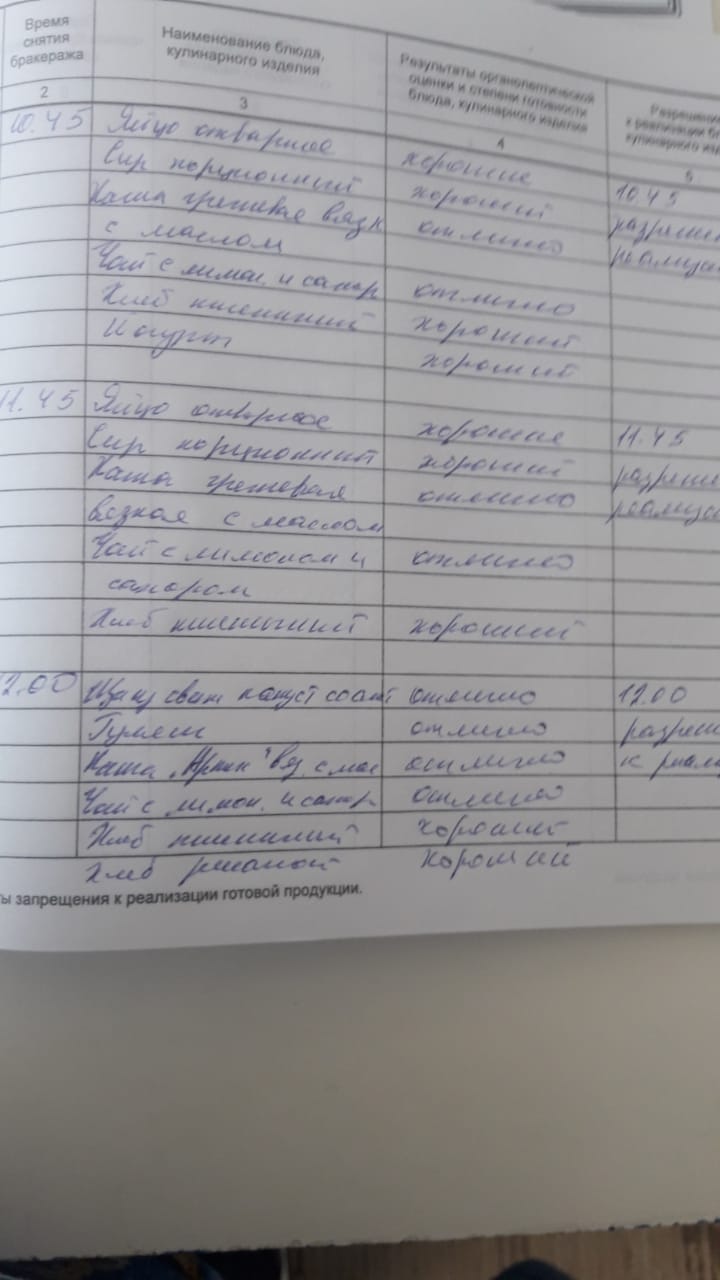 Время снятия бракеража
Наименование блюда, кулинарного изделия
Результаты органолептической оценки и степени готовности блюда, кулинарного изделия
2
3
4
5
10.45 Яйцо отварное хорошие
Сыр порционный хороший 10.45
Каша гречневая вязк отлично
с маслом
Чай с лимон. и сахар отлично
Хлеб пшеничний хороший
Йогурт хороший
11.45 Яйцо отварное хорошие 11.45
Сыр порционный хороший
Каша гречневая отлично
вязкая с маслом
Чай с лимоном и отлично
сахаром
Хлеб пшеничний хороший
12.00 Щи из свеж капуст отлично 12.00
Гуляш отлично
Каша вяз. с мас отлично
Чай с лимон. и сахар отлично
Хлеб пшеничний хороший
Хлеб ржаной хороший
ты запрещения к реализации готовой продукции.